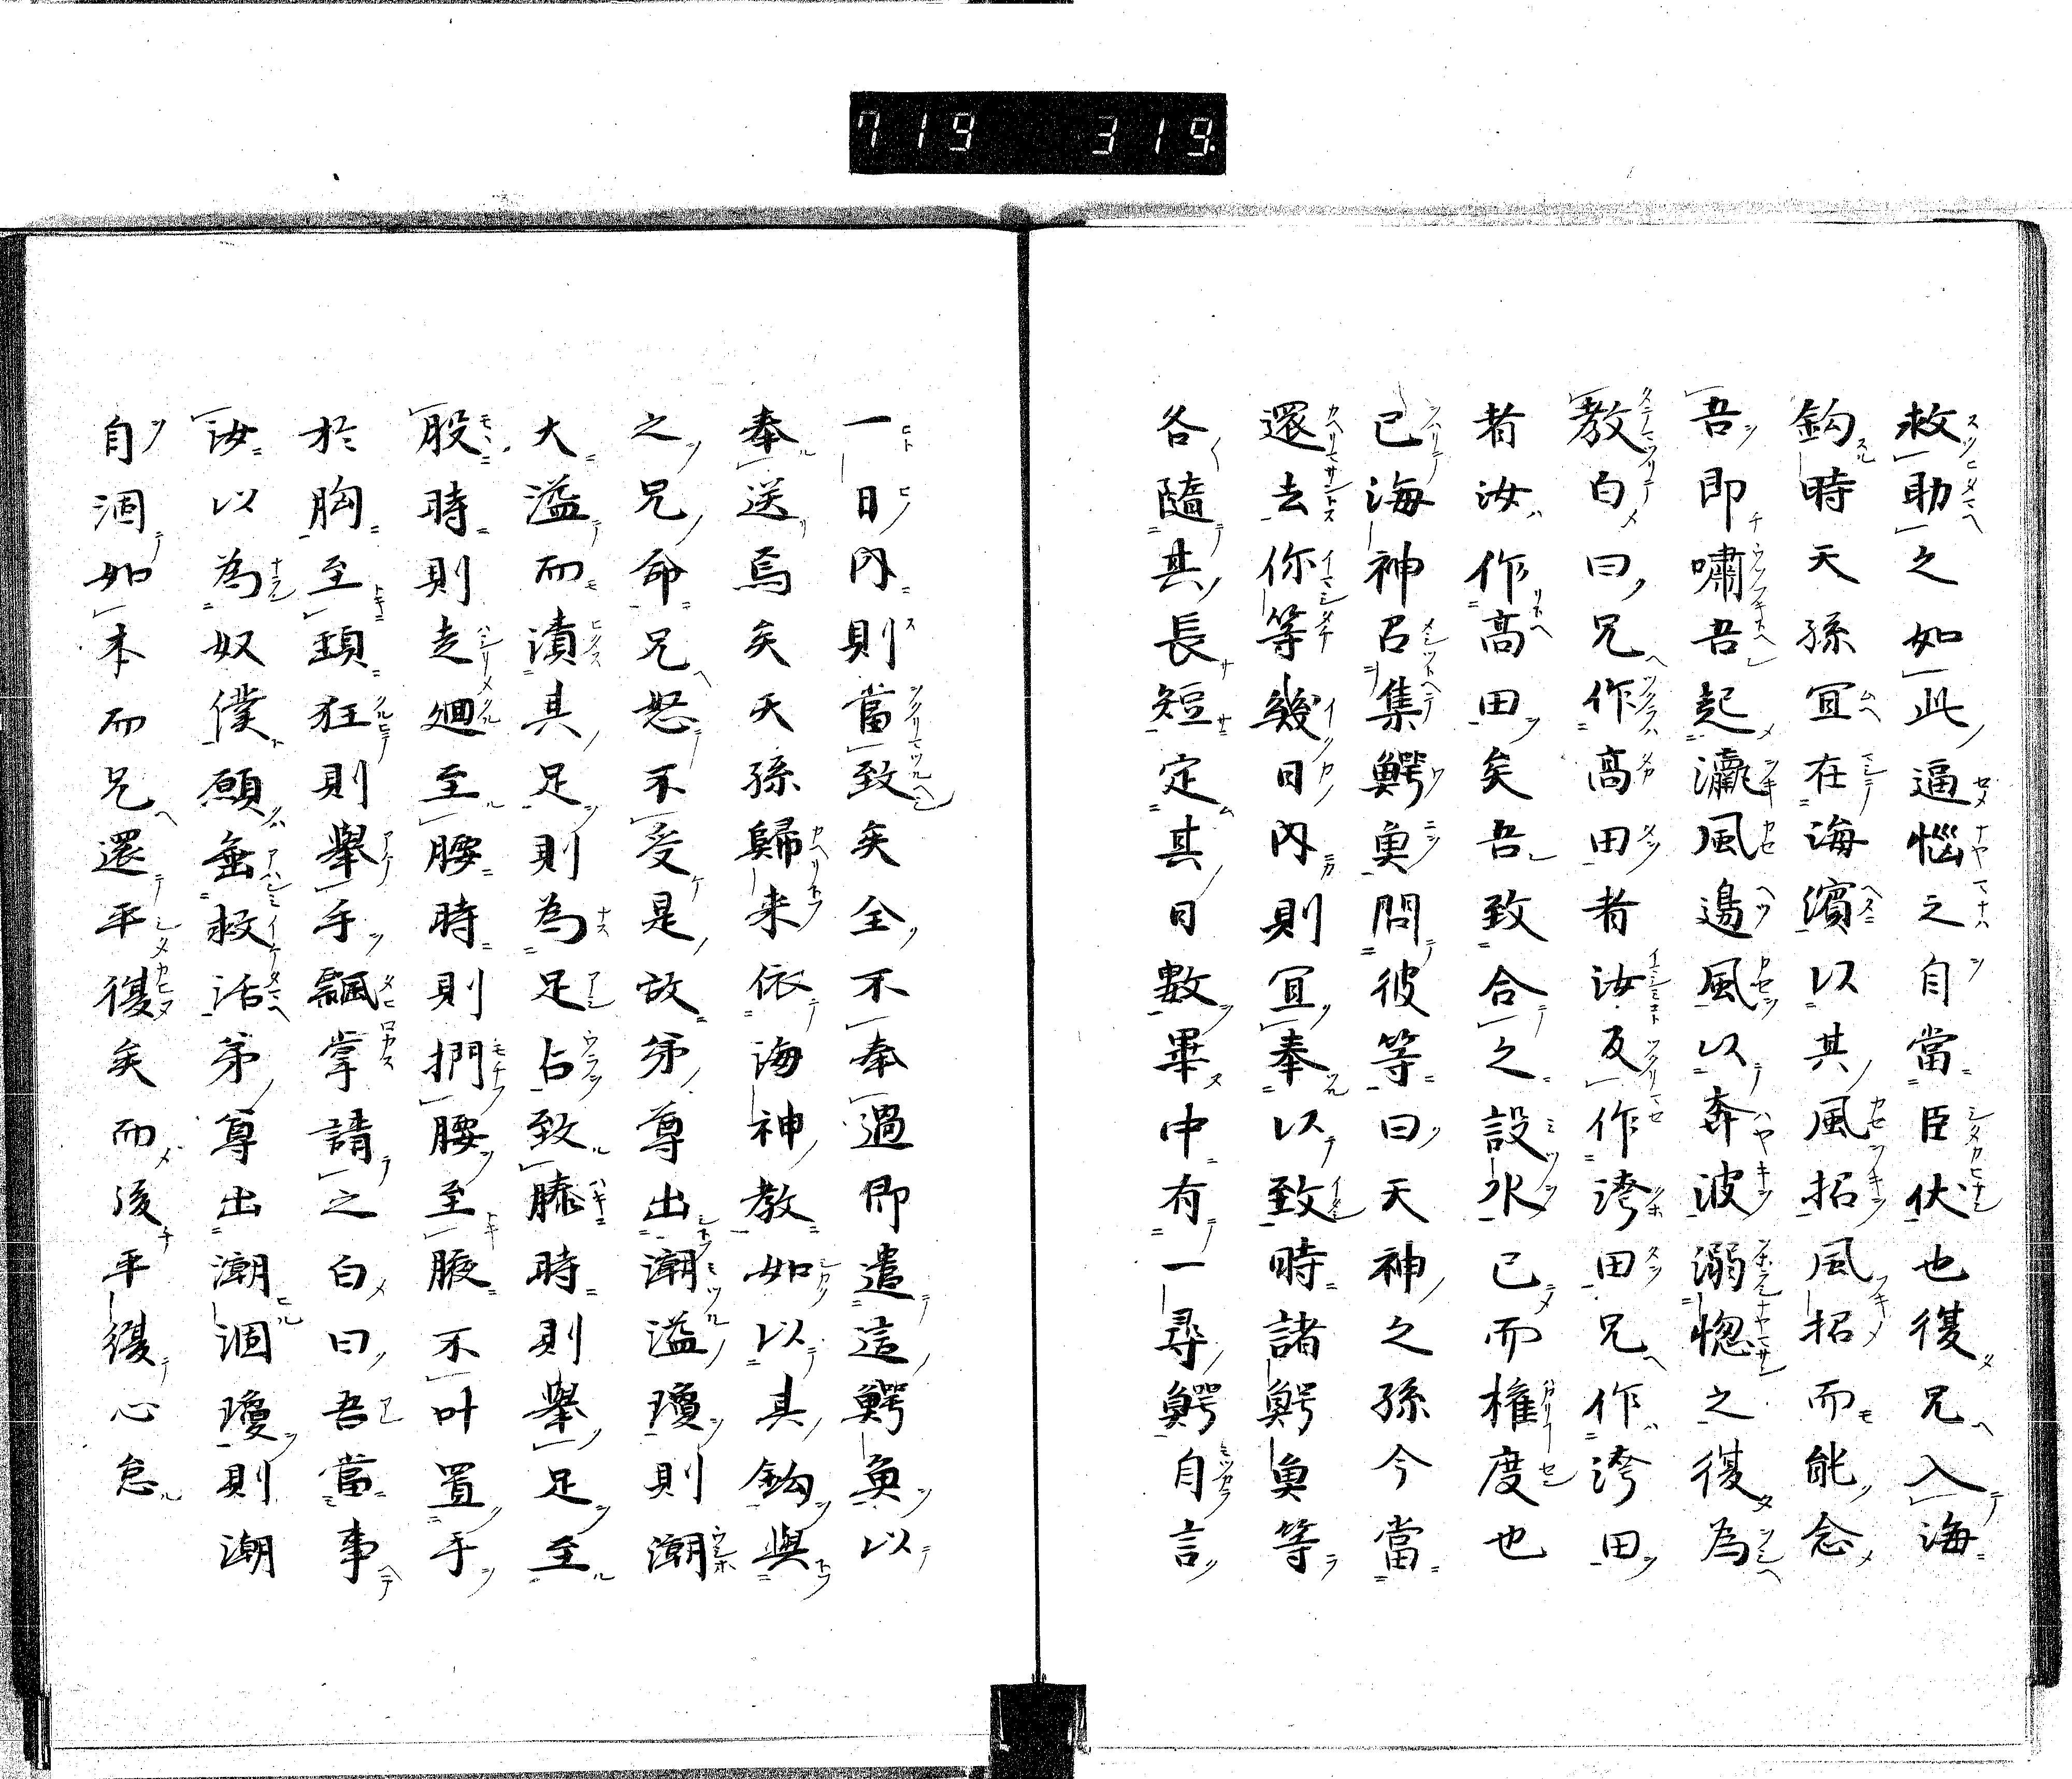 719 319.
救助之如此逼惱之自當臣伏也復兄入海
鈎時天孫宜在海濱以其風招風招而能念
吾即嘯吾起瀛風邊風以奔波溺惚之復為
教白曰兄作高田者汝反作洿田兄作洿田
者汝作高田矣吾致合之設水已而権度也
已海神召集鰐魚問彼等曰天神之孫今當
還去你等幾日內則宜奉以致時諸鰐魚等
各隨其長短定其日數畢中有一尋鰐自言
一日內則當致矣全不奉過即遣這鰐魚以
奉送焉矣天孫歸来依海神教如以其鈎與
之兄命兄怒不受是故弟尊出潮溢瓊則潮
大溢而漬其足則為足占致膝時則舉足至
股時則走廻至腰時則捫腰至腋不叶置手
於胸至頚狂則舉手飄掌請之白曰吾當事
汝以為奴僕願垂救活弟尊出潮涸瓊則潮
自涸如本而兄還平復矣而後平復心怠